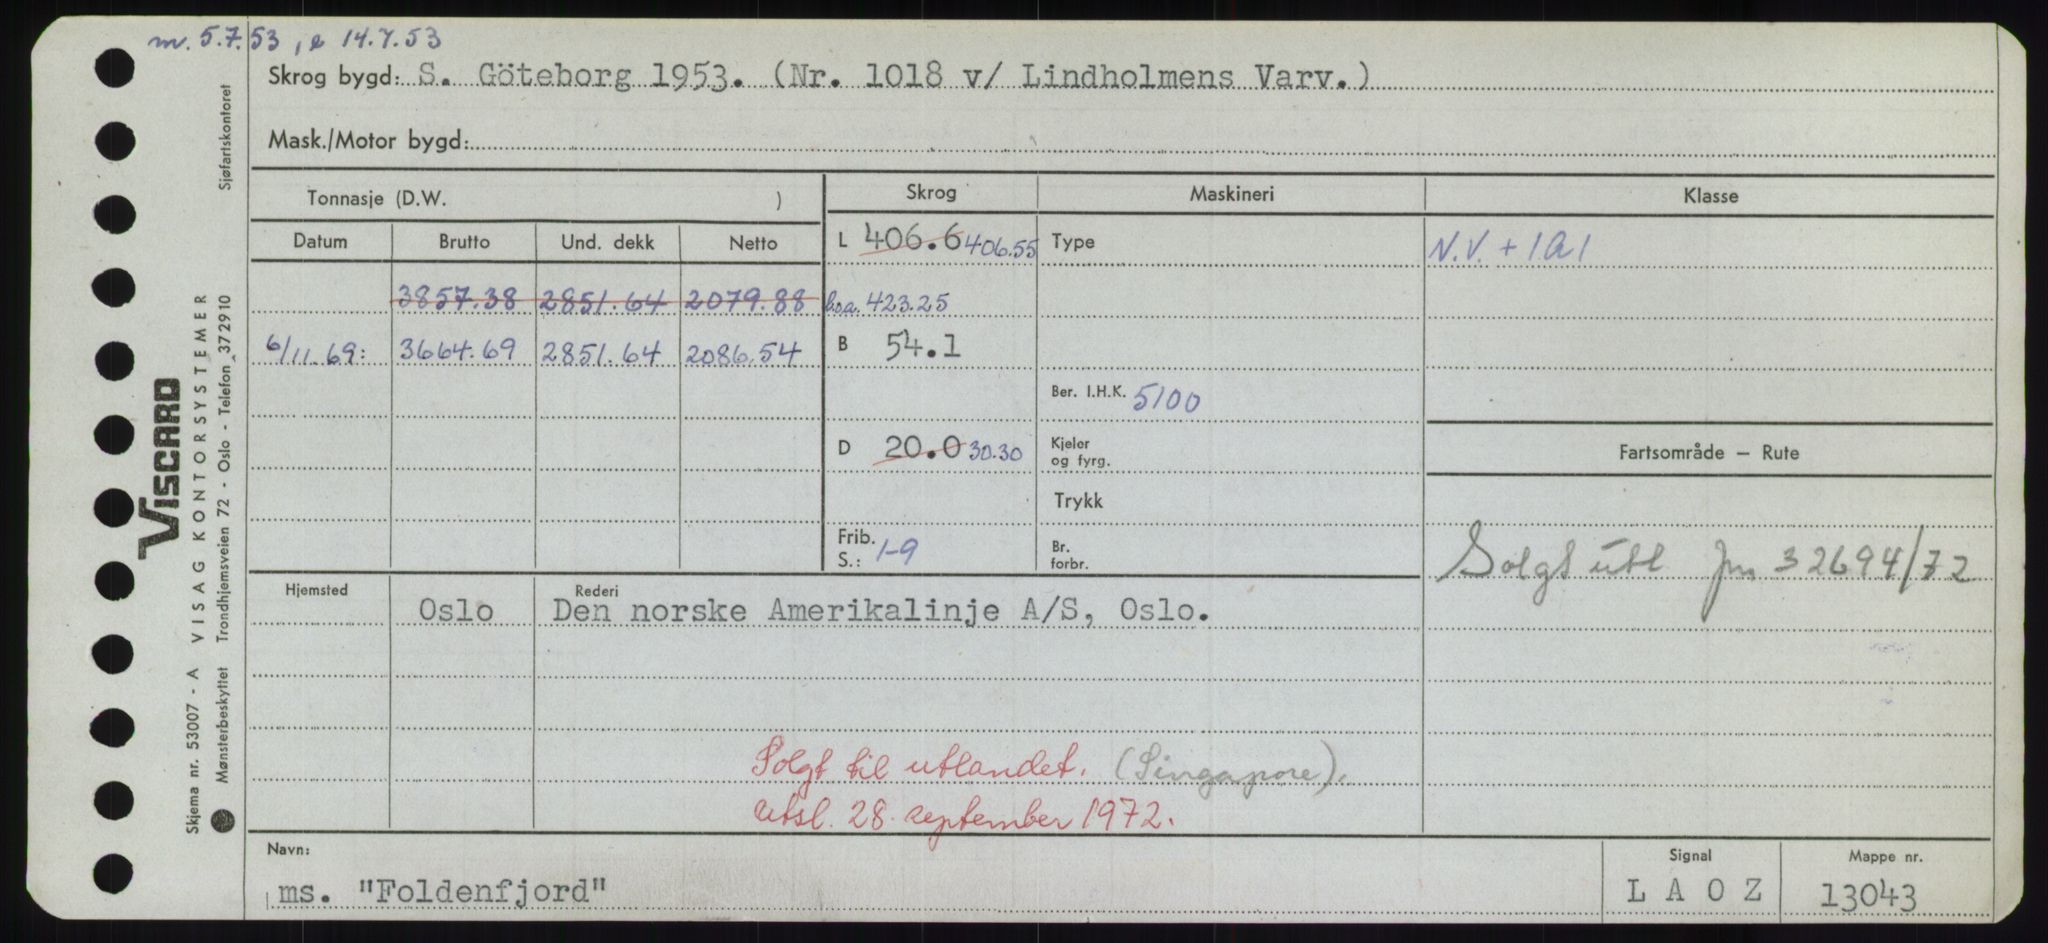 m. 5.7.53, e 14.7.53
Skrog bygd: S. Göteborg 1953. (Nr. 1018 v/ Lindholmens Varv.)
Mask./Motor bygd:
Tonnasje (D.W. )
Skrog Maskineri Klasse
Datum Brutto Und. dekk Netto
L 406.6 406.55 Type N.V. + 1A1
3857.38 2851.64 2079.88 l.o.a. 423.25
6/11.69: 3664.69 2851.64 2086.54 B 54.1
Ber. I.H.K. 5100
D 20.0 30.30 Kjeler
og fyrg.
Fartsområde — Rute
Trykk
Frib.
S.: 1-9 Br.
forbr.
Solgt utl jnr 32694/72
Hjemsted Rederi
Oslo Den norske Amerikalinje A/S, Oslo.
Solgt til utlandet. (Singapore).
utsl. 28. september 1972.
Navn: Signal Mappe nr.
ms. "Foldenfjord" L A O Z 13043
Sjøfartskontoret
VISCARD
VISAG KONTORSYSTEMER
Skjema nr. 53007 - A
Mønsterbeskyttet Trondhjemsveien 72 - Oslo - Telefon 372910